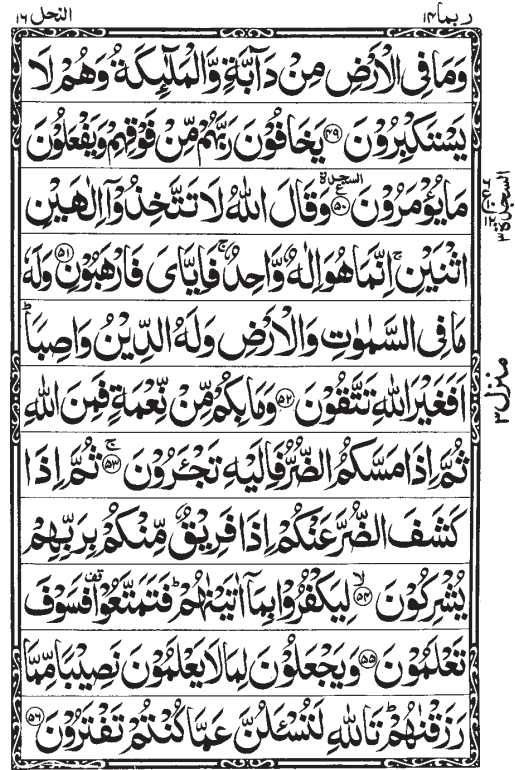 ربما ١٤
النحل ١٦
وَمَا فِى الْاَرْضِ مِنْ دَآبَّةٍ وَّالْمَلٰٓئِكَةُ وَهُمْ لَا
يَسْتَكْبِرُوْنَ ﴿۴۹﴾ يَخَافُوْنَ رَبَّهُمْ مِّنْ فَوْقِهِمْ وَيَفْعَلُوْنَ
مَا يُؤْمَرُوْنَ ﴿۵۰﴾ السجدة ع وَقَالَ اللّٰهُ لَا تَتَّخِذُوْٓا اِلٰهَيْنِ
اثْنَيْنِ ۚ اِنَّمَا هُوَ اِلٰهٌ وَّاحِدٌ ۚ فَاِيَّاىَ فَارْهَبُوْنِ ﴿۵۱﴾ وَلَهٗ
مَا فِى السَّمٰوٰتِ وَالْاَرْضِ وَلَهُ الدِّيْنُ وَاصِبًا ؕ
اَفَغَيْرَ اللّٰهِ تَتَّقُوْنَ ﴿۵۲﴾ وَمَا بِكُمْ مِّنْ نِّعْمَةٍ فَمِنَ اللّٰهِ
ثُمَّ اِذَا مَسَّكُمُ الضُّرُّ فَاِلَيْهِ تَجْـَٔرُوْنَ ﴿۵۳﴾ ۚ ثُمَّ اِذَا
كَشَفَ الضُّرَّ عَنْكُمْ اِذَا فَرِيْقٌ مِّنْكُمْ بِرَبِّهِمْ
يُشْرِكُوْنَ ﴿۵۴﴾ ۙ لِيَكْفُرُوْا بِمَآ اٰتَيْنٰهُمْ ؕ فَتَمَتَّعُوْا قف فَسَوْفَ
تَعْلَمُوْنَ ﴿۵۵﴾ وَيَجْعَلُوْنَ لِمَا لَا يَعْلَمُوْنَ نَصِيْبًا مِّمَّا
رَزَقْنٰهُمْ ؕ تَاللّٰهِ لَتُسْـَٔلُنَّ عَمَّا كُنْتُمْ تَفْتَرُوْنَ ﴿۵۶﴾
السجدة ٣
منزل ٣